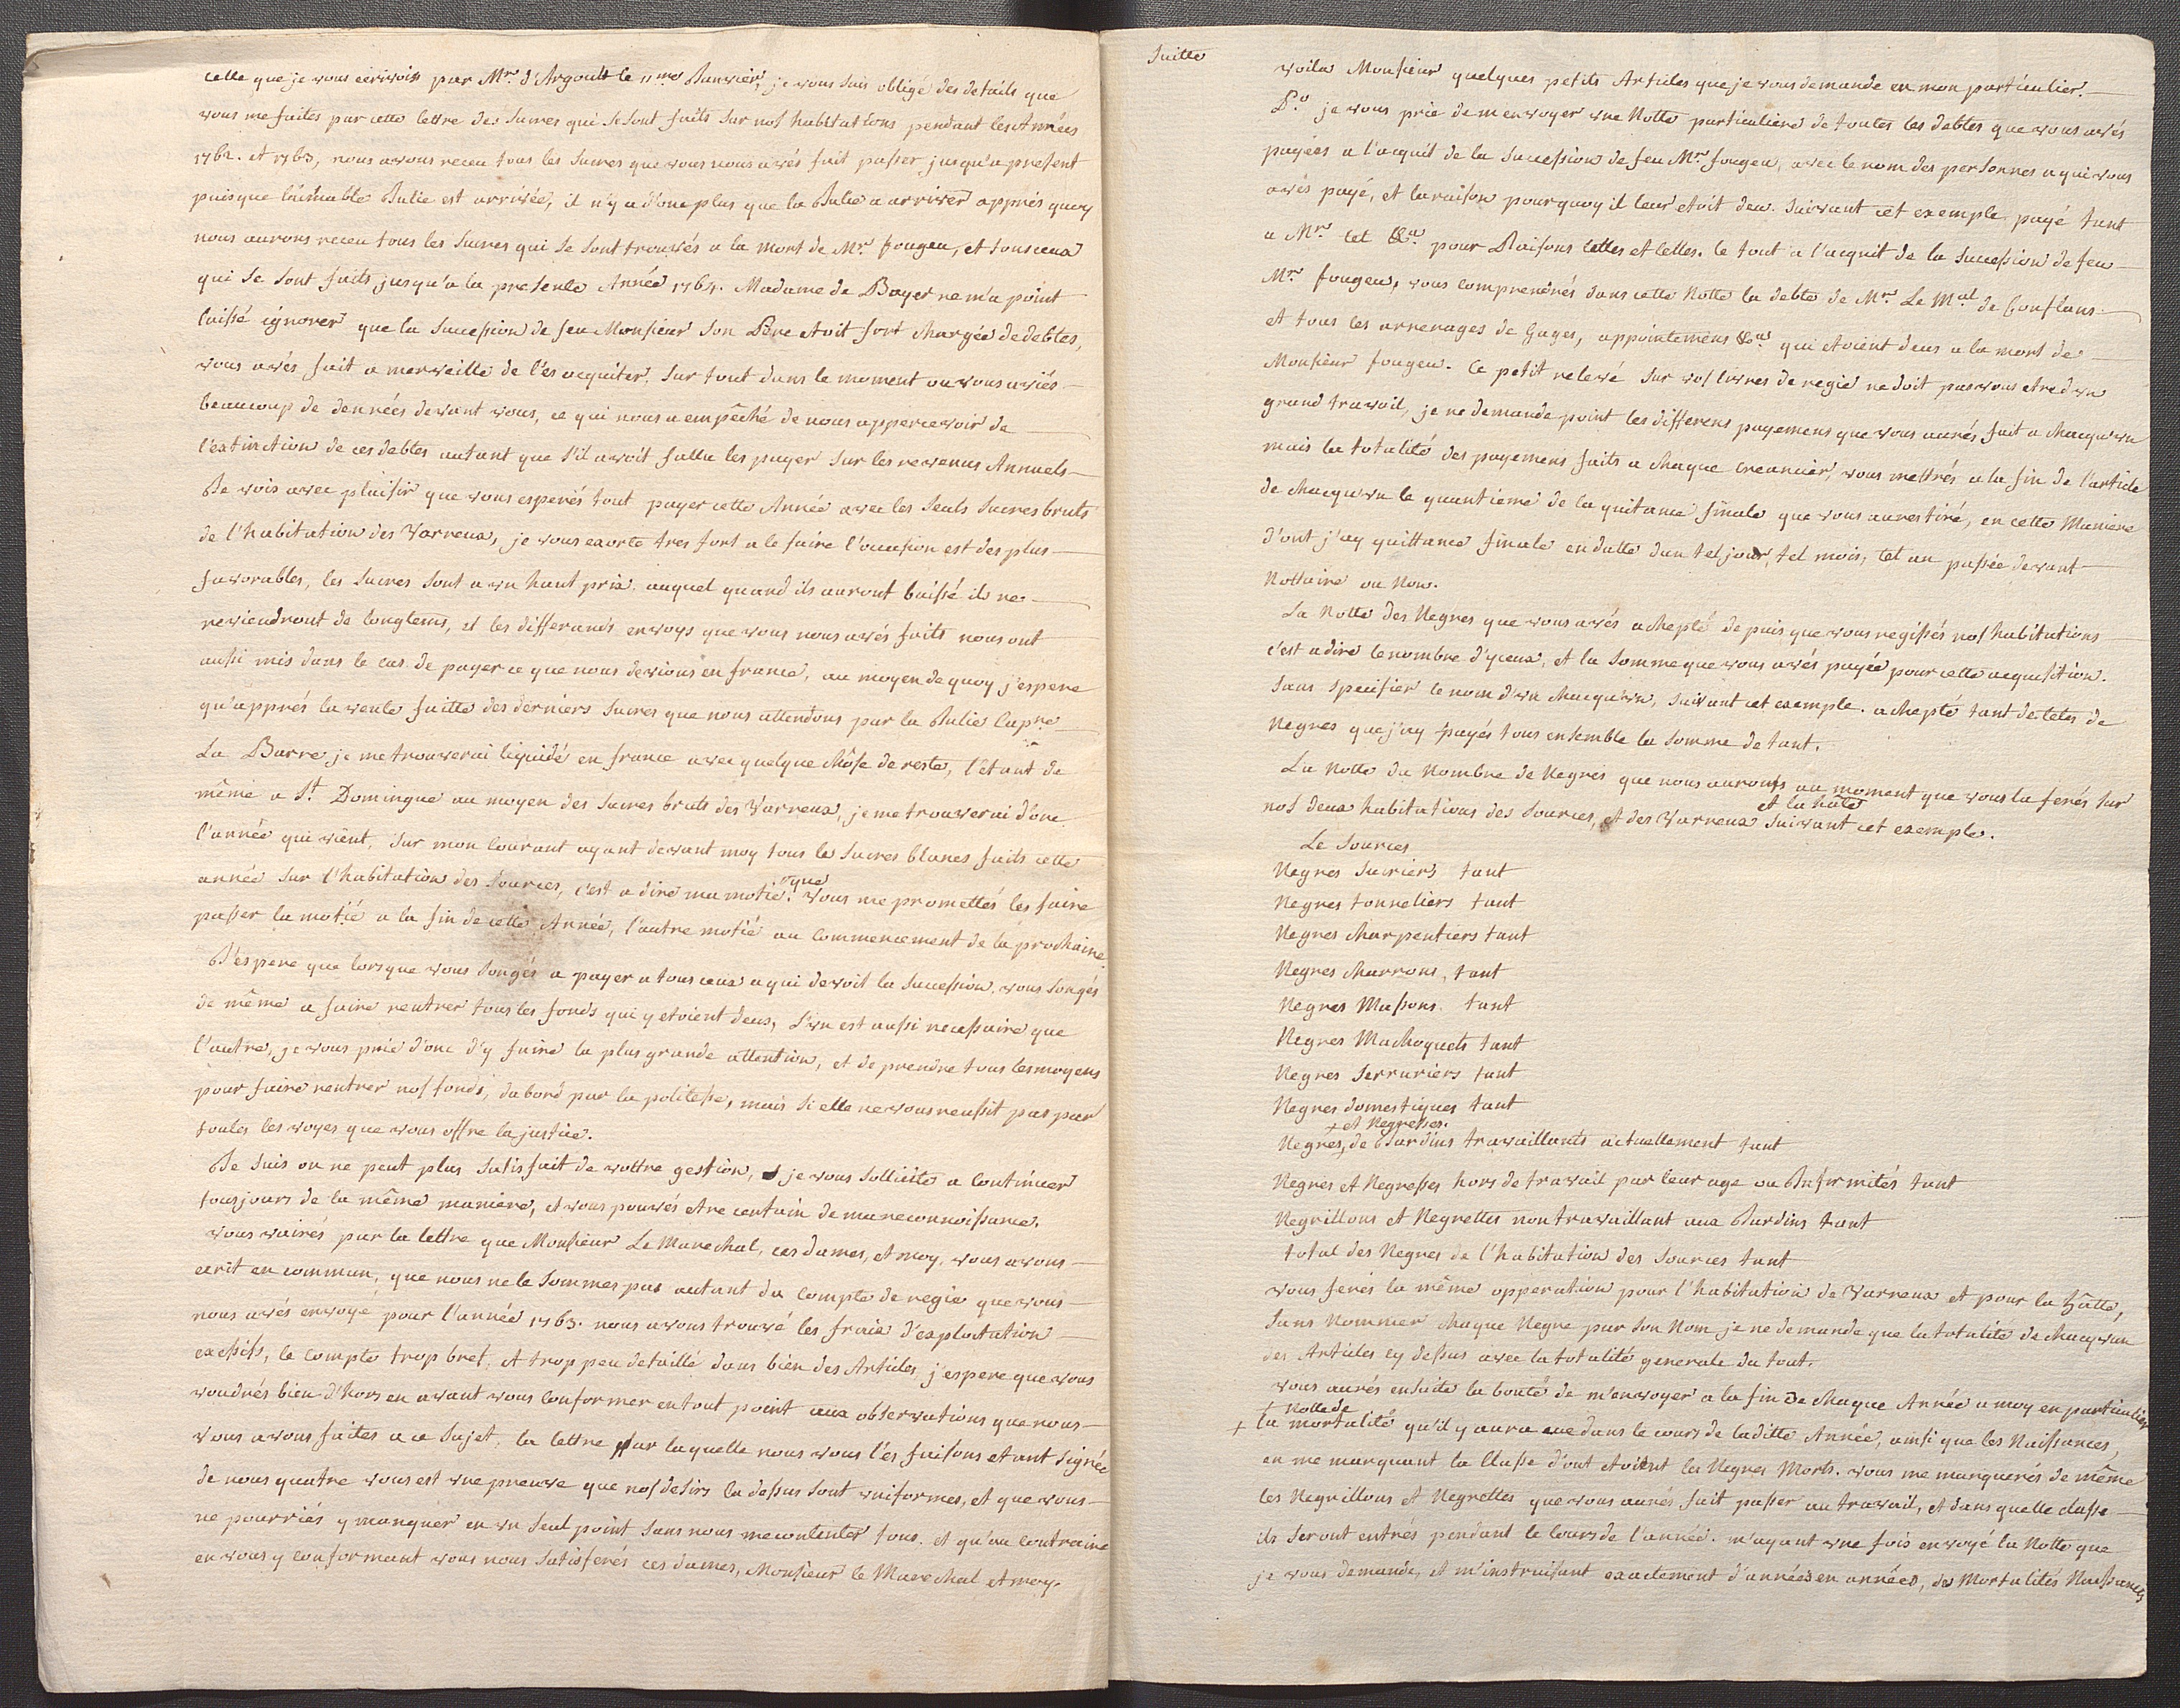 celle que je vous ecrivois par Mr. d'Argoult le 11me Janvier, je vous suis obligé des details que
vous me faites par cette lettre des sucres qui se sont faits sur nos habitations pendant les Années
1762. et 1763, nous avons receu tous les sucres que vous nous avés fait passer jusqu'a present
puisque l'aimable Julie est arrivée, il n'y a d'onc plus que la Julie a arriver apprés quoy
nous aurons receu tous les sucres qui se sont trouvés a la mort de Mr. fougeu, et tous ceux
qui se sont faits jusqu'a la presente Année 1764. Madame de Boyer ne m'a point
laissé ignorer que la succession de feu Monsieur son Pere etoit fort chargée de debtes,
vous avés fait a merveille de l'es acquiter, sur tout dans le moment ou vous aviés
beaucoup de denrées devant vous, ce qui nous a empêché de nous appercevoir de
l'extinction de ces debtes autant que s'il avoit fallu les payer sur les revenus Annuels
Je vois avec plaisir que vous esperés tout payer cette Année avec les seuls sucres bruts
de l'habitation des Varreux, je vous exorte tres fort a le faire l'occasion est des plus
favorables, les sucres sont a un haut prix, auquel quand ils auront baissé ils ne
reviendront de longtems, et les differants envoys que vous nous avés faits nous ont
aussi mis dans le cas de payer ce que nous devions en france, au moyen de quoy j'espere
qu'apprés la vente faitte des derniers sucres que nous attendons par la Julie Capne.
La Barre je me trouverai liquidé en france avec quelque chôse de reste, l'étant de
même a St. Domingue au moyen des sucres bruts des Varreux, je me trouverai d'onc
l'année qui vient, sur mon courant ayant devant moy tous les sucres blancs faits cette
année sur l'habitation des sources, c'est a dire ma motié, que vous me promettés les faire
passer la motié a la fin de cette Année, l'autre motié au commencement de la prochaine.
J'espere que lorsque vous songés a payer a tous ceux a qui devoit la succession, vous songés
de même a faire rentrer tous les fonds qui y etoient deus, l'un est aussi necessaire que
l'autre, je vous prie d'onc d'y faire la plus grande attention, et de prendre tous les moyens
pour faire rentrer nos fonds, dabord par la politesse, mais si elle ne vous reussit pas par
toutes les voyes que vous offre la justice.
Je suis on ne peut plus satisfait de vottre gestion, je vous sollicite a continuer
tousjours de la même maniere, et vous pouvés etre certain de ma reconnoissance.
vous vairés par la lettre que Monsieur Le Marechal, ces dames, et moy, vous avons
ecrit en commun, que nous ne le sommes pas autant du compte de regie que vous
nous avés envoyé pour l'année 1763. nous avons trouvé les frais d'exploitation
excessifs, le compte trop bref, et trop peu detaillé dans bien des Articles, j'espere que vous
voudrés bien d'hors en avant vous conformer en tout point aux observations que nous
vous avons faites a ce sujet, la lettre par laquelle nous vous l'es faisons etant signée
de nous quatre vous est une preuve que nos desirs la dessus sont uniformes, et que vous
ne pourriés y manquer en un seul point sans nous mecontenter tous, et qu'au contraire
en vous y conformant vous nous satisferés ces dames, Monsieur le Marechal et moy.
Suitte
voila Monsieur quelques petits Articles que je vous demande en mon particulier.
Po. je vous prie de m envoyer une Notte particuliere de toutes les debtes que vous avés
payées a l'acquit de la succession de feu Mr. fougeu, avec le nom des personnes a qui vous
avés payé, et la raison pourquoy il leur etoit deu. Suivant cet exemple payé tant
a Mr. tel &a. pour Raisons telles et telles. le tout a l'acquit de la succession de feu
Mr. fougeu, vous comprendrés dans cette Notte la debte de Mr. Le Mal. de Conflans
et tous les arrerages de Gages, appointemens &a. qui etoient deus a la mort de
Monsieur fougeu. Ce petit relevé sur vos livres de regie ne doit pas vous etre d un
grand travail, je ne demande point les differens payemens que vous aurés fait a chacqu'un
mais la totalité des payemens faits a chaque creancier, vous mettrés a la fin de l'article
de chacqu'un le quantieme de la quitance finale que vous aurés tiré, en cette Maniere
d'ont j'ay quittance finale en datte dun tel jour, tel mois, tel an passée devant
Nottaire ou Non.
La Notte des Negres que vous avés achepté depuis que vous regissés nos habitations
c'est a dire le nombre d'yceux, et la somme que vous avés payée pour cette acquesition.
sans specifier le nom d'un chacqu'un, suivant cet exemple. achepté tant de tetes de
Negres que j'ay payés tous ensemble la somme de tant.
La Notte du Nombre de Negres que nous aurons au moment que vous la ferés sur
et la hâte
nos deux habitations des sources, et des Varreux suivant cet exemple.
Le Sources
Negres sucriers tant
Negres tonneliers tant
Negres charpentiers tant
Negres charrons, tant
Negres Massons tant
Negres Machoquets tant
Negres Serruriers tant
Negres domestiques tant
+ et Negresses.
Negres, de Jardins travaillants actuellement tant
Negres et Negresses hors de travail par leur age ou Infirmités tant
Negrillons et Negrettes non travaillant aux Jardins tant
total des Negres de l'habitation des Sources tant
vous ferés la même opperation pour l'habitation de Varreux et pour la hâtte,
sans Nommer chaque Negre par son Nom je ne demande que la totalité de chacqu'un
des Articles cy dessus avec la totalité generale du tout.
vous aurés ensuite la bonté de m'envoyer a la fin de chaque Année a moy en particulier
+ Notte de
la mortalité qu'il y aura eue dans le cours de laditte Année, ainsi que les Naissances,
en me marquant la Classe d'ont etoient les Negres Morts. vous me marquerés de même
les Negrillons et Negrettes que vous aurés fait passer au travail, et dans quelle classe
ils seront entrés pendant le cours de l'année. m'ayant une fois envoyé la Notte que
je vous demande, et m'instruisant exactement d'années en années, des Mortalités Naissances